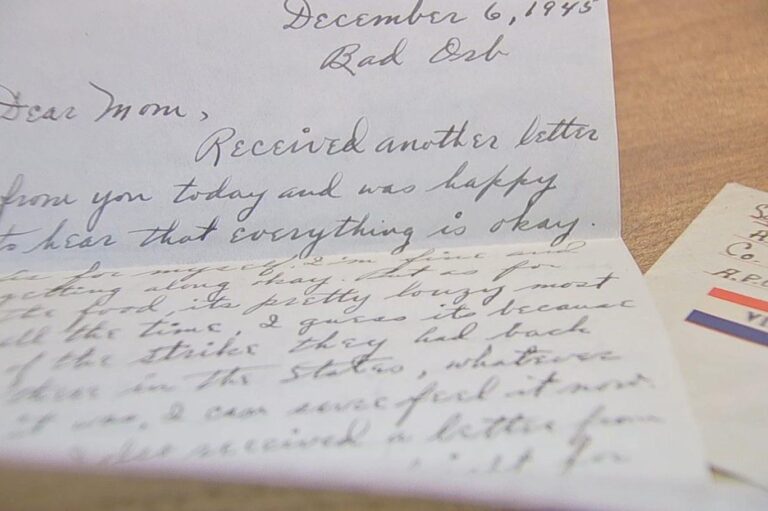 December 6, 1945
Bad Orb
Dear Mom,
Received another letter
from you today and was happy
to hear that everything is okay.
As for myself, I'm fine and
getting along okay. But as for
the food, its pretty louzy most
all the time, I guess its because
of the strike they had back
there in the States, whatever
it was, I can sure feel it now
I also received a letter from
for
Co.
A.P.O
VI